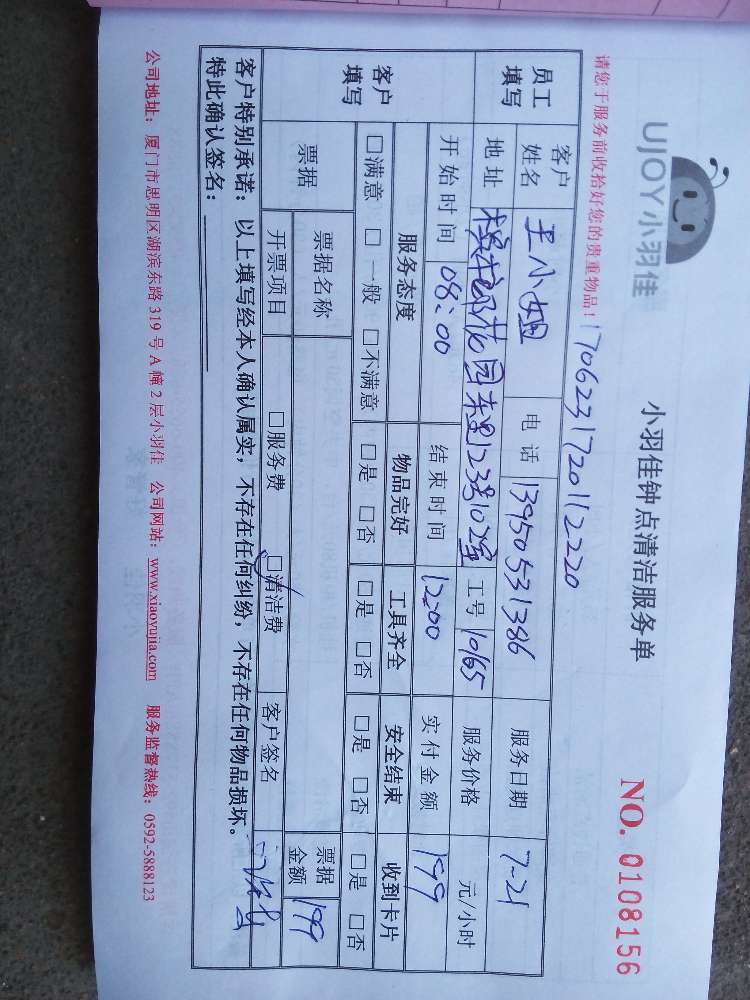 UJOY小羽佳
小羽佳钟点清洁服务单
NO. 0108156
请您于服务前收拾好您的贵重物品!
1706231720112220
员工填写
客户姓名 王小姐 电话 13950531386 服务日期 7-21
地址 花园东里123号102室 工号 10165 服务价格 元/小时
开始时间 08:00 结束时间 1200 实付金额 199
客户填写
服务态度 物品完好 工具齐全 安全结束 收到卡片
□满意 □一般 □不满意 □是 □否 □是 □否 □是 □否 □是 □否
票据 票据名称 票据金额 199
开票项目 □服务费 □清洁费 客户签名
客户特别承诺: 以上填写经本人确认属实,不存在任何纠纷,不存在任何物品损坏。
特此确认签名:
公司地址: 厦门市思明区湖滨东路 319 号 A 幢 2 层小羽佳 公司网站: www.xiaoyujia.com 服务监督热线: 0592-5888123